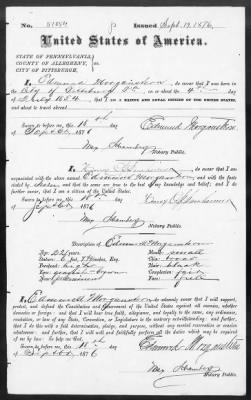 No. 51854
Issued Sept. 19, 1876
United States of America.
STATE OF PENNSYLVANIA,
COUNTY OF ALLEGHENY, ss.
CITY OF PITTSBURGH,
I, Edmund Morganstern, do swear that I was born in the
City of Pittsburg Pa. on or about the 4th day
of July 1854; that I am a NATIVE AND LOYAL CITIZEN OF THE UNITED STATES,
and about to travel abroad.
Sworn to before me, this 18th day
of Sept 1876
Edmund Morganstern
Notary Public.
I, do swear that I am
acquainted with the above named Edmund Morganstern and with the facts
stated by and that the same are true to the best of my knowledge and belief; and I do
further swear, that I am a citizen of the United States.
Sworn to before me, this 18th day
of 1876
Notary Public.
Description of Edmund Morganstern
Age: 22 years
Mouth: small
Stature: 5 ft. Inches, Eng.
Forehead: high
Eyes:
Nose:
Hair: black
Complexion: fair
Face:
I, Edmund Morganstern do solemnly swear that I will support, protect, and
defend the Constitution and Government of the United States against all enemies, whether
domestic or foreign; and that I will bear true faith, allegiance, and loyalty to the same, any ordinance,
resolution, or law of any State, Convention, or Legislature to the contrary notwithstanding; and further,
that I do this with a full determination, pledge, and purpose, without any mental reservation or evasion
whatsoever; and further, that I will well and faithfully perform all the duties which may be required
of me by law: So help me God.
Sworn to before me, this 18th day
of 1876
Edmund Morganstern
Notary Public.